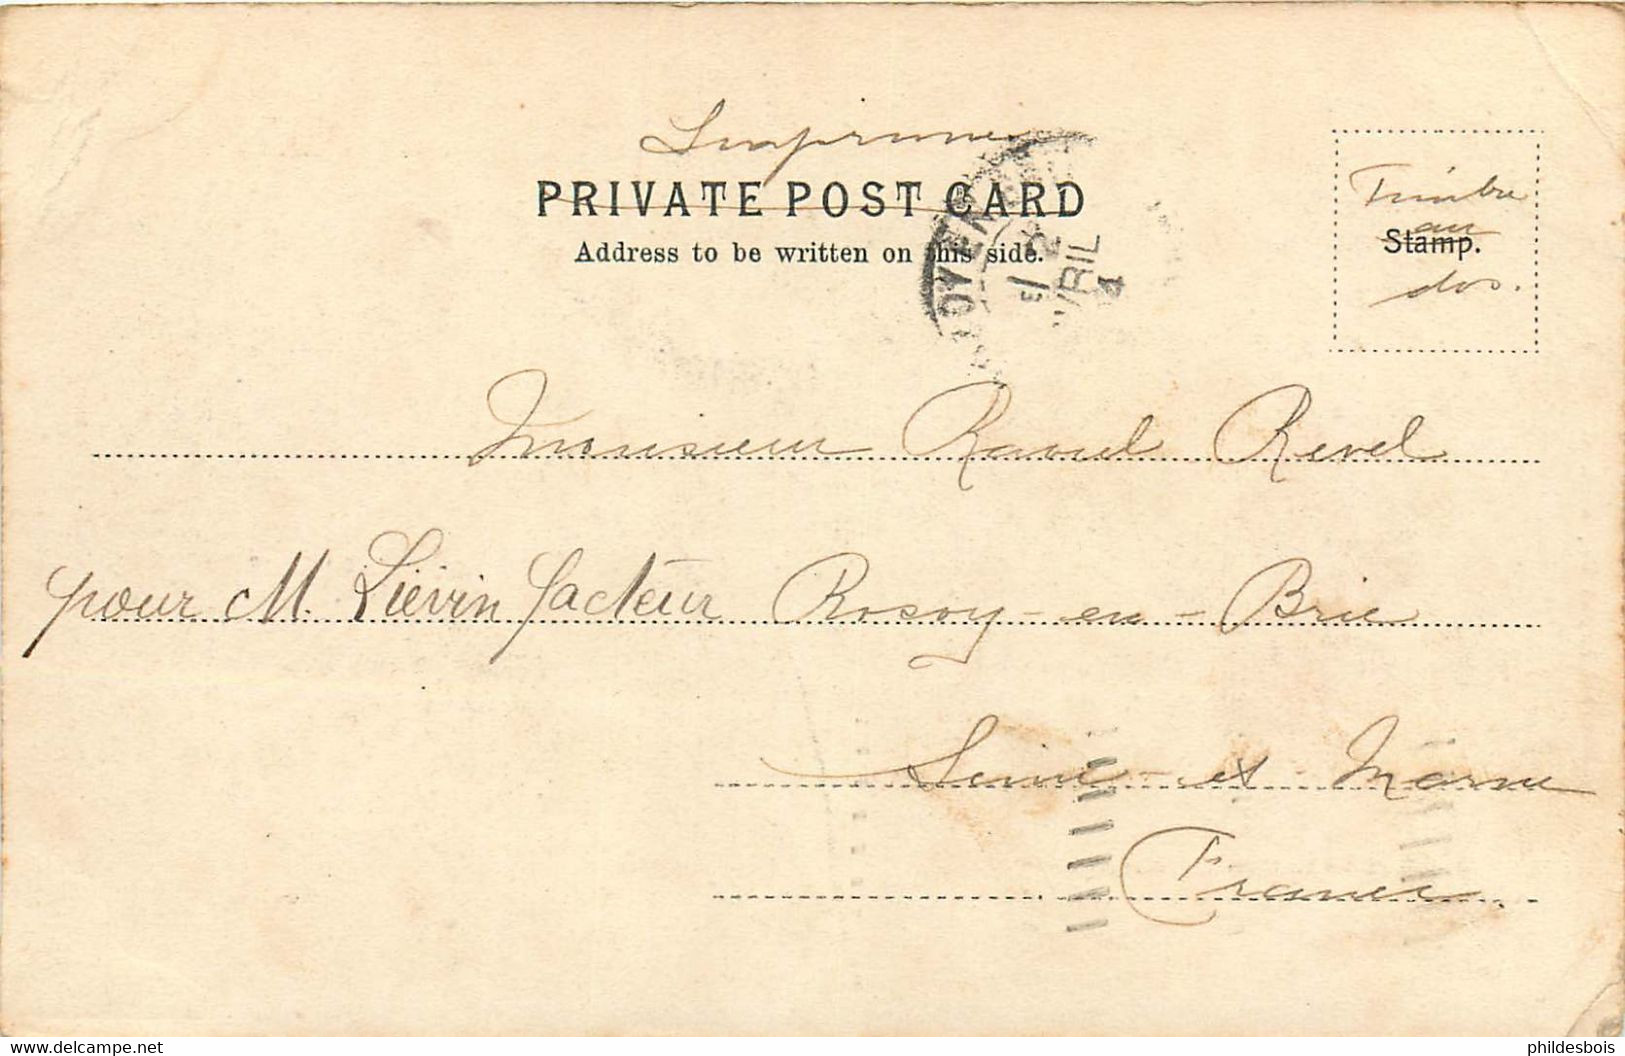 Imprimé
PRIVATE POST CARD
Address to be written on this side.
Timbre
au
Stamp.
dos.
Monsieur Raoul Revel
pour M. Liévin facteur Rosoy-en-Brie
Seine-et Marne
France.
delcampe.net
phildesbois